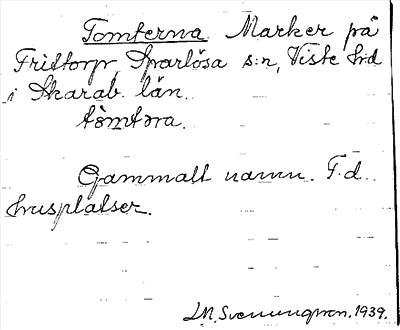 Tomterna. Marker på
Fristorp, Sparlösa s:n, Viste hrd
i Skarab. län.
tòmtəra.
Gammalt namn. F.d.
husplatser.
1939.